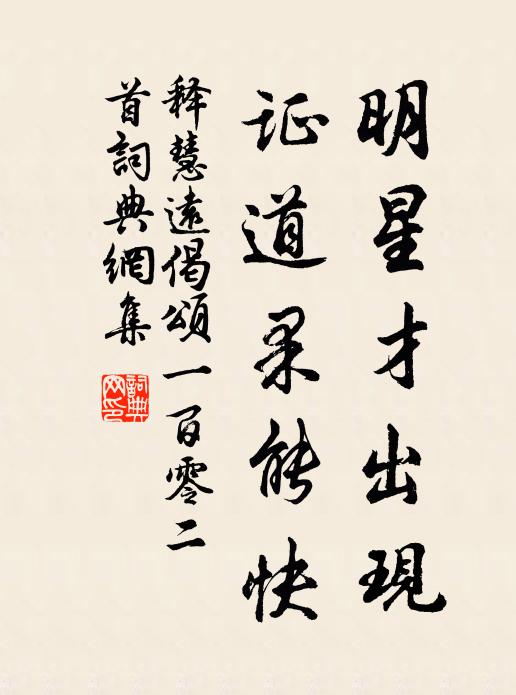 明星才出現
证道果能快
释慧遠偈頌一百零二
首詞典網集
詞典
网印